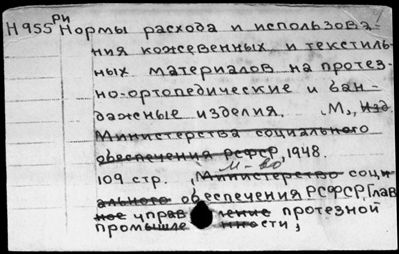 РИ
Н955 Нормы расхода и использова-
ния кожевенных и текстиль-
ных материалов на протез-
но-ортопедические и бан-
дажные изделия. М., Изд
Министерства социального
обеспечения РСФСР, 1948.
М-во
109 стр. , Министерство соци
ального обеспечения РСФСР, Глав
ное управление протезной
промышленности,